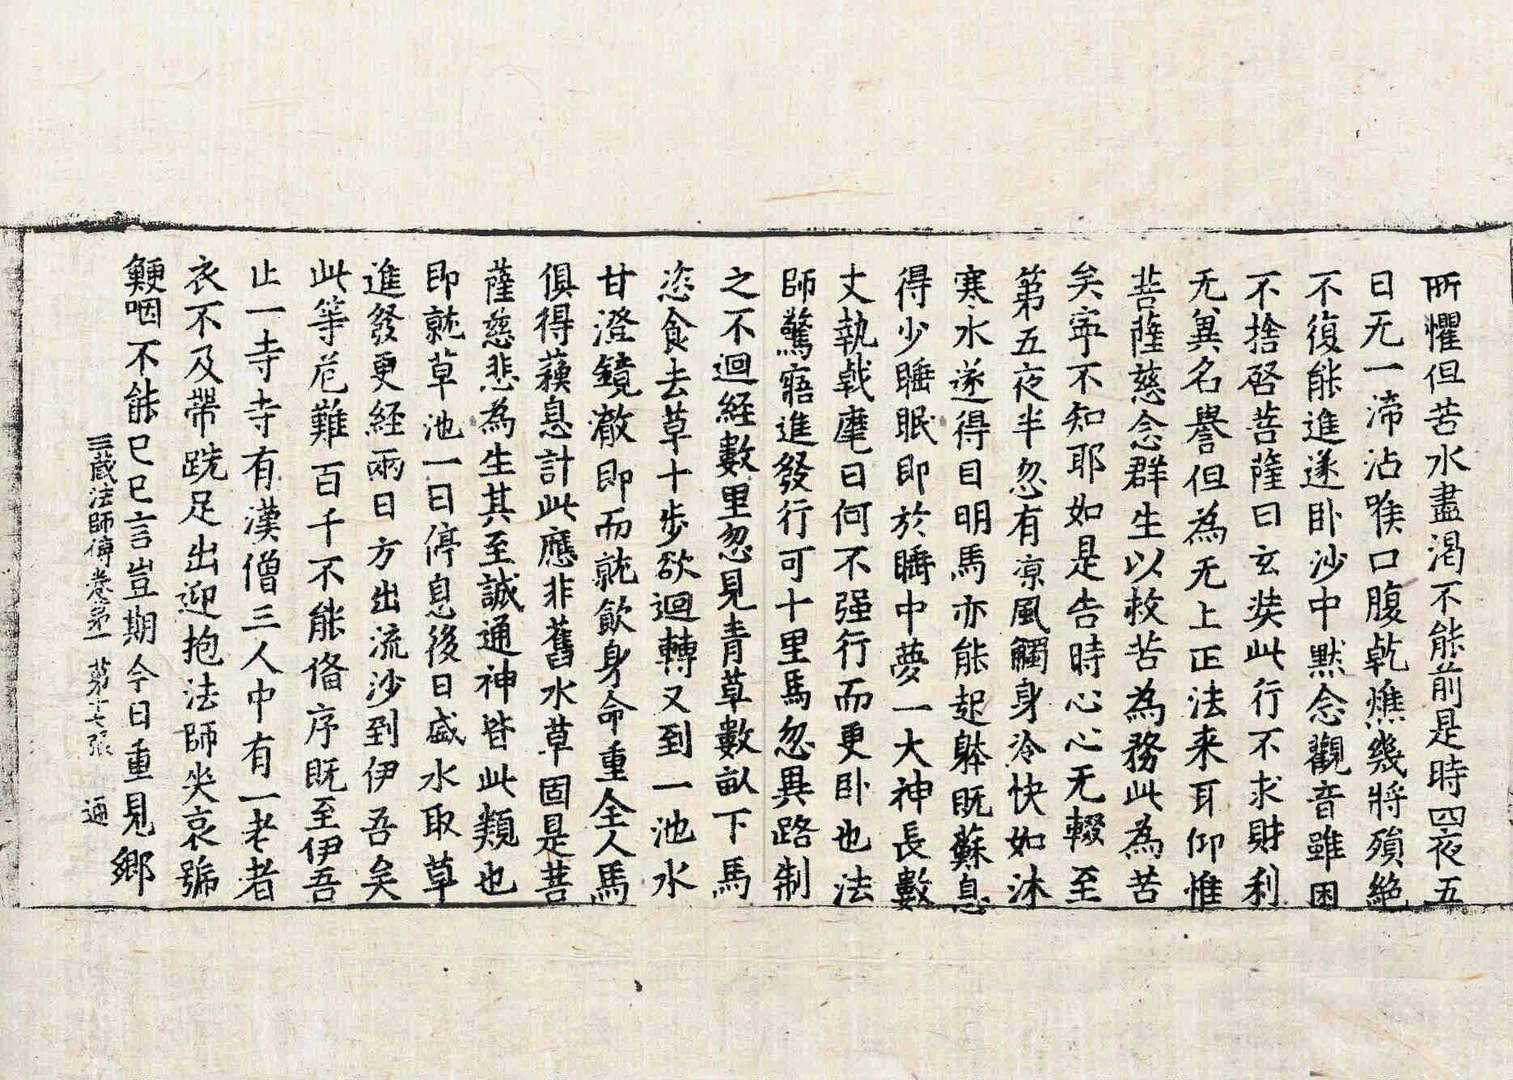 所懼但苦水盡渴不能前是時四夜五
日无一渧沾喉口腹乾燋幾將殞絶
不復能進遂卧沙中默念觀音雖困
不捨啓菩薩曰玄奘此行不求財利
无冀名譽但為无上正法来耳仰惟
菩薩慈念群生以救苦為務此為苦
矣寧不知耶如是告時心心无輟至
第五夜半忽有凉風觸身冷快如沐
寒水遂得目明馬亦能起躰既蘇息
得少睡眠即於睡中夢一大神長數
丈執戟麾曰何不强行而更卧也法
師驚寤進發行可十里馬忽異路制
之不迴経數里忽見青草數畝下馬
恣食去草十步欲迴轉又到一池水
甘澄鏡澈即而就飲身命重全人馬
俱得蘓息計此應非舊水草固是菩
薩慈悲為生其至誠通神皆此類也
即就草池一日停息後日盛水取草
進發更経兩日方出流沙到伊吾矣
此等危難百千不能俻序既至伊吾
止一寺寺有漢僧三人中有一老者
衣不及帶跣足出迎抱法師哭哀號
鯁咽不能已已言豈期今日重見鄉
三藏法師傳卷第一 第十七張 通